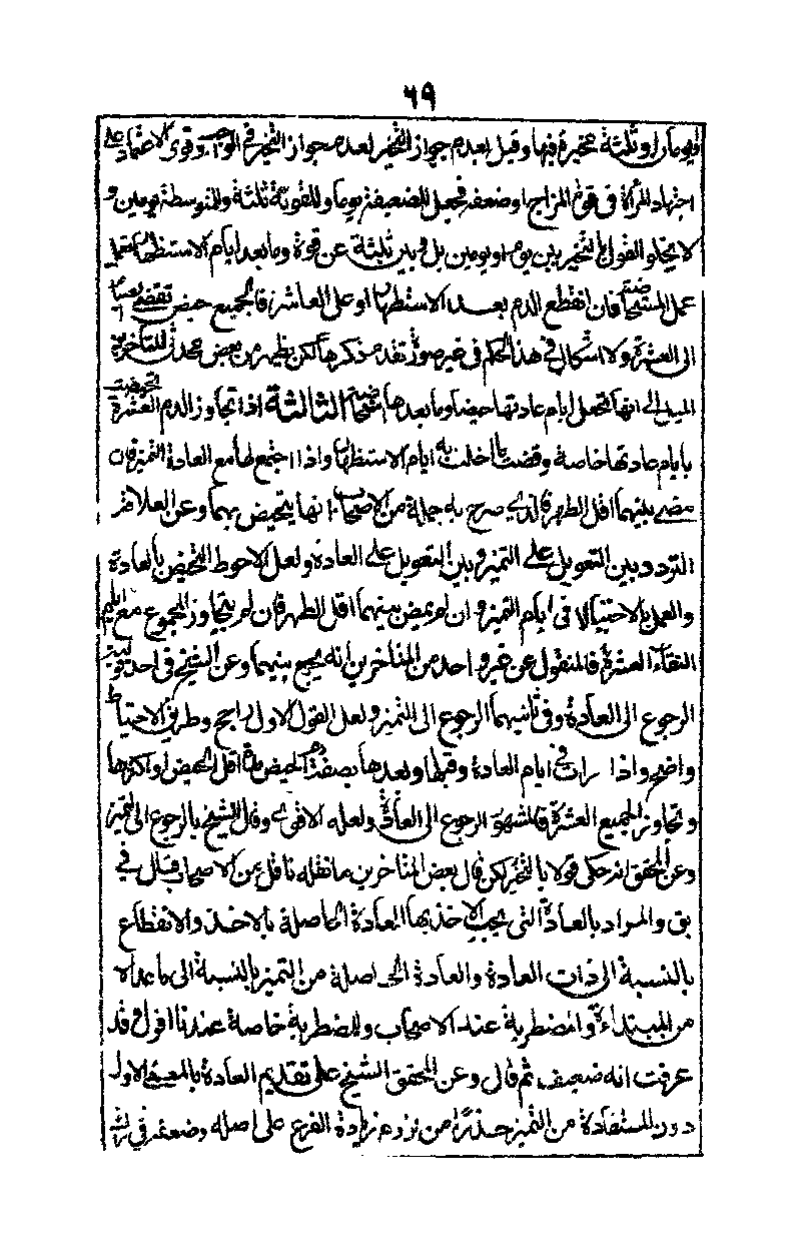 ٦٩
او يومان او ثلثة مخيرة فيها وقيل بعدم جواز التخيير لعدم جواز التخيير في الواجب وقوى الاعتماد على
اجتهاد المرأة في قوة المزاج وضعفه فجعل للضعيفة يوما وللقوية ثلثة وللمتوسطة يومين و
لا يخلو القول بالتخيير بين يوم او يومين بل وبين ثلثة عن قوة وما بعد ايام الاستظهار تعمل
عمل المستحاضة فان انقطع الدم بعد الاستظهار او على العاشر فالجميع حيض تقضي
الى العشرة ولا اشكال في هذا الحكم في غير صورة تقدم ذكرها لكن يظهر من بعض محدثي المتأخرين
الميل الى انها تجعل ايام عادتها حيضا وما بعدها استحاضة الثالثة اذا تجاوز الدم العشرة تحيضت
بايام عادتها خاصة وقضت ما اخلت به ايام الاستظهار واذا اجتمع لها مع العادة التميز فان
مضى بينهما اقل الطهر فالذي صرح به جملة من الاصحاب انها يتحيض بهما وعن العلامة
التردد وبين التعويل على التميز وبين التعويل على العادة ولعل الاحوط التحيض بالعادة
والعمل بالاحتياط في ايام التميز وان لم يمض بينهما اقل الطهر فان لم يتجاوز المجموع مع ايام
النقاء العشرة فالمنقول عن غير واحد من المتأخرين انه يجمع بينهما وعن الشيخ في احد قوليه
الرجوع الى العادة وفي ثانيهما الرجوع الى التميز ولعل القول الاول راجح وطريق الاحتياط
واضح واذا رات في ايام العادة وقبلها وبعدها بصفة الحيض اقل الحيض او اكثرها
وتجاوز الجميع العشرة فالمشهور الرجوع الى العادة ولعله الاقوى وقال الشيخ بالرجوع الى التميز
وعن المحقق انه حكى قولا بالتخيير لكن قال بعض المتأخرين ما نقله ناقل من الاصحاب قال في
بق والمراد بالعادة التي يجب الاخذ بها العادة الحاصلة بالاخذ والانقطاع
بالنسبة الى ذات العادة والعادة الحاصلة من التميز بالنسبة الى ما عداه
من المبتداءة والمضطربة عند الاصحاب والمضطربة خاصة عندنا اقول وقد
عرفت انه ضعيف ثم قال وعن المحقق الشيخ علي تقديم العادة بالمعنى الاول
دون المستفادة من التميز حذرا من لزوم زيادة الفرع على اصله وضعفه في